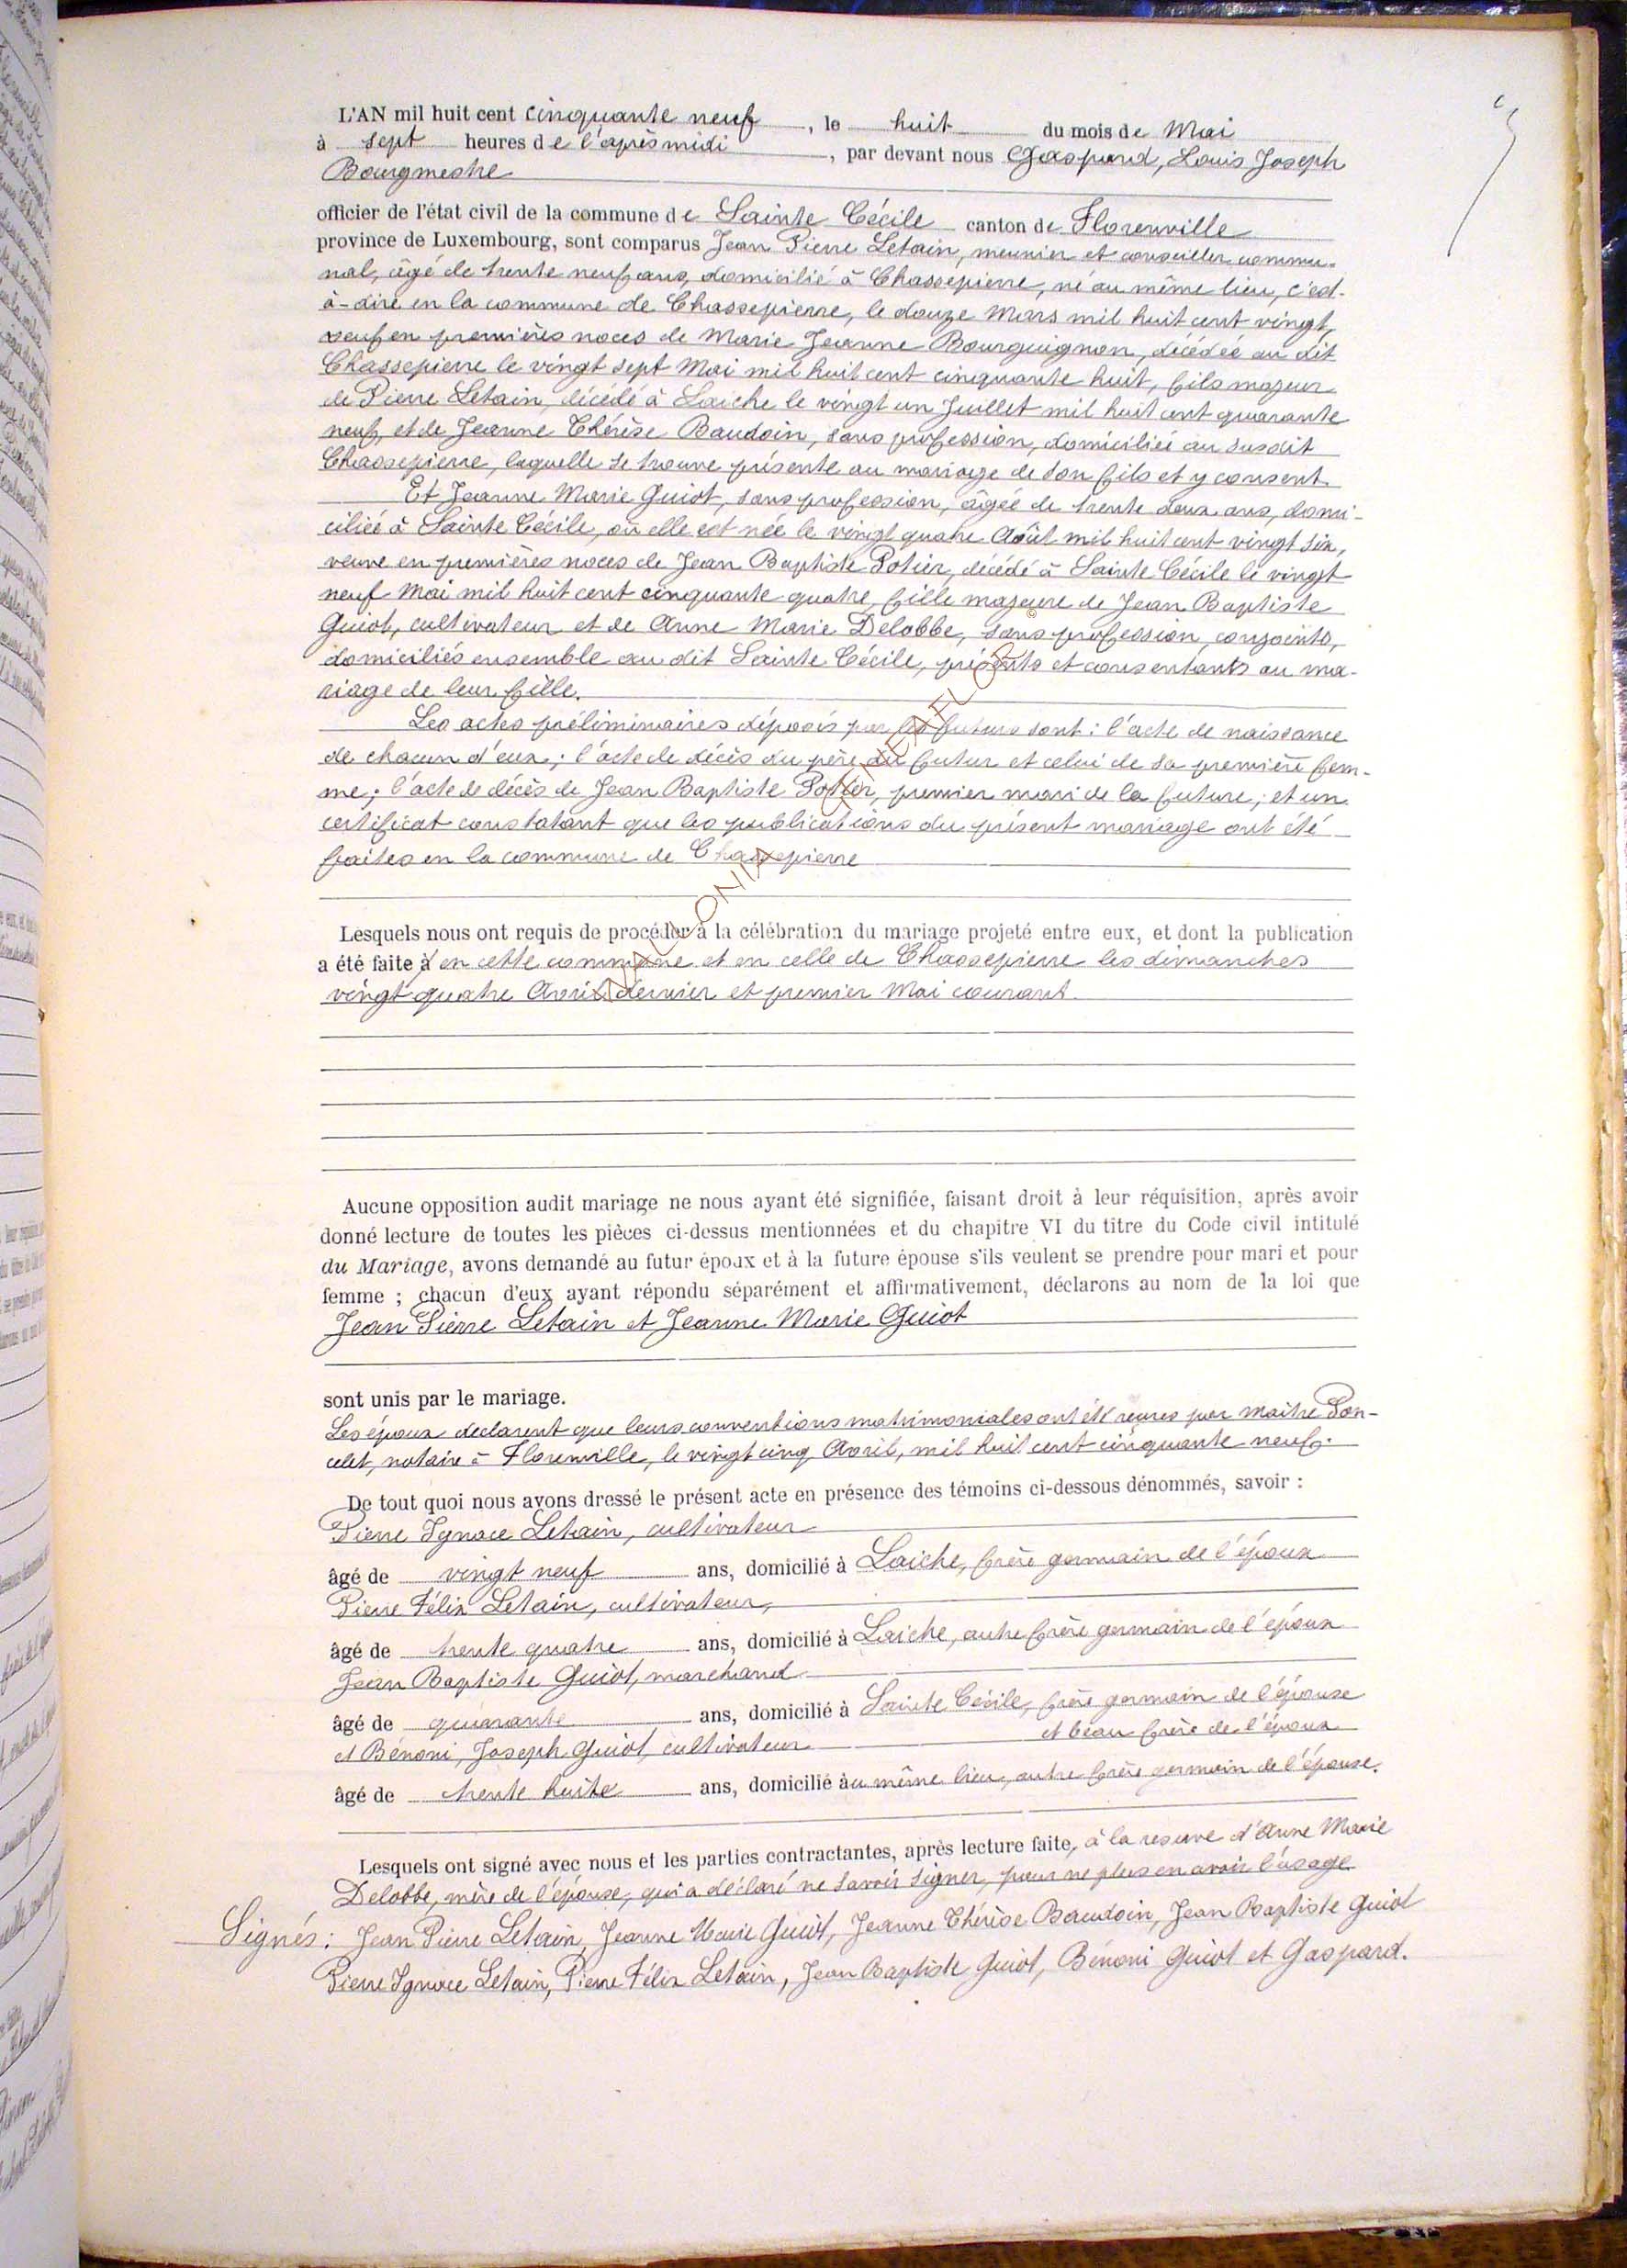 L'AN mil huit cent cinquante neuf, le huit du mois de Mai
à sept heures de l'après midi, par devant nous Gaspard, Louis Joseph
Bourgmestre
officier de l'état civil de la commune de Sainte Cécile canton de Florenville
province de Luxembourg, sont comparus Jean Pierre Letain, meunier et conseiller commu-
nal, âgé de trente neuf ans, domicilié à Chassepierre, né au même lieu, c'est-
à-dire en la commune de Chassepierre, le douze Mars mil huit cent vingt,
veuf en premières noces de Marie Jeanne Bourguignon, décédée au dit
Chassepierre le vingt sept Mai mil huit cent cinquante huit, fils majeur
de Pierre Letain, décédé à Laiche le vingt un Juillet mil huit cent quarante
neuf, et de Jeanne Thérèse Baudoin, sans profession, domiciliée au susdit
Chassepierre, laquelle se trouve présente au mariage de son fils et y consent.
Et Jeanne Marie Guiot, sans profession, âgée de trente deux ans, domi-
ciliée à Sainte Cécile, où elle est née le vingt quatre Août mil huit cent vingt six,
veuve en premières noces de Jean Baptiste Potier, décédé à Sainte Cécile le vingt
neuf Mai mil huit cent cinquante quatre, fille majeure de Jean Baptiste
Guiot, cultivateur et de Anne Marie Delobbe, sans profession, conjoints,
domiciliés ensemble au dit Sainte Cécile, présents et consentants au ma-
riage de leur fille.
Les actes préliminaires déposés par les futurs sont : l'acte de naissance
de chacun d'eux ; l'acte de décès du père du futur et celui de sa première fem-
me ; l'acte de décès de Jean Baptiste Potier, premier mari de la future ; et un
certificat constatant que les publications du présent mariage ont été
faites en la commune de Chassepierre
Lesquels nous ont requis de procéder à la célébration du mariage projeté entre eux, et dont la publication
a été faite à en cette commune et en celle de Chassepierre les dimanches
vingt quatre Avril dernier et premier Mai courant.
Aucune opposition audit mariage ne nous ayant été signifiée, faisant droit à leur réquisition, après avoir
donné lecture de toutes les pièces ci-dessus mentionnées et du chapitre VI du titre du Code civil intitulé
du Mariage, avons demandé au futur époux et à la future épouse s'ils veulent se prendre pour mari et pour
femme ; chacun d'eux ayant répondu séparément et affirmativement, déclarons au nom de la loi que
Jean Pierre Letain et Jeanne Marie Guiot
sont unis par le mariage.
Les époux declarent que leurs conventions matrimoniales ont été reçues par maitre Pon-
celet, notaire à Florenville, le vingt cinq Avril, mil huit cent cinquante neuf.
De tout quoi nous avons dressé le présent acte en présence des témoins ci-dessous dénommés, savoir :
Pierre Ignace Letain, cultivateur
âgé de vingt neuf ans, domicilié à Laiche, frère germain de l'époux
Pierre Félix Letain, cultivateur,
âgé de trente quatre ans, domicilié à Laiche, autre frère germain de l'époux
Jean Baptiste Guiot, marchand
âgé de quarante ans, domicilié à Sainte Cécile, frère germain de l'épouse
et Bénoni, Joseph Guiot, cultivateur et beau frère de l'époux
âgé de trente huit ans, domicilié au même lieu, autre frère germain de l'épouse.
Lesquels ont signé avec nous et les parties contractantes, après lecture faite, à la reserve d'Anne Marie
Delobbe, mère de l'épouse, qui a déclaré ne savoir signer, pour ne plus en avoir l'usage
Signés : Jean Pierre Letain, Jeanne Marie Guiot, Jeanne Thérèse Baudoin, Jean Baptiste Guiot
Pierre Ignace Letain, Pierre Félix Letain, Jean Baptiste Guiot, Bénoni Guiot et Gaspard.